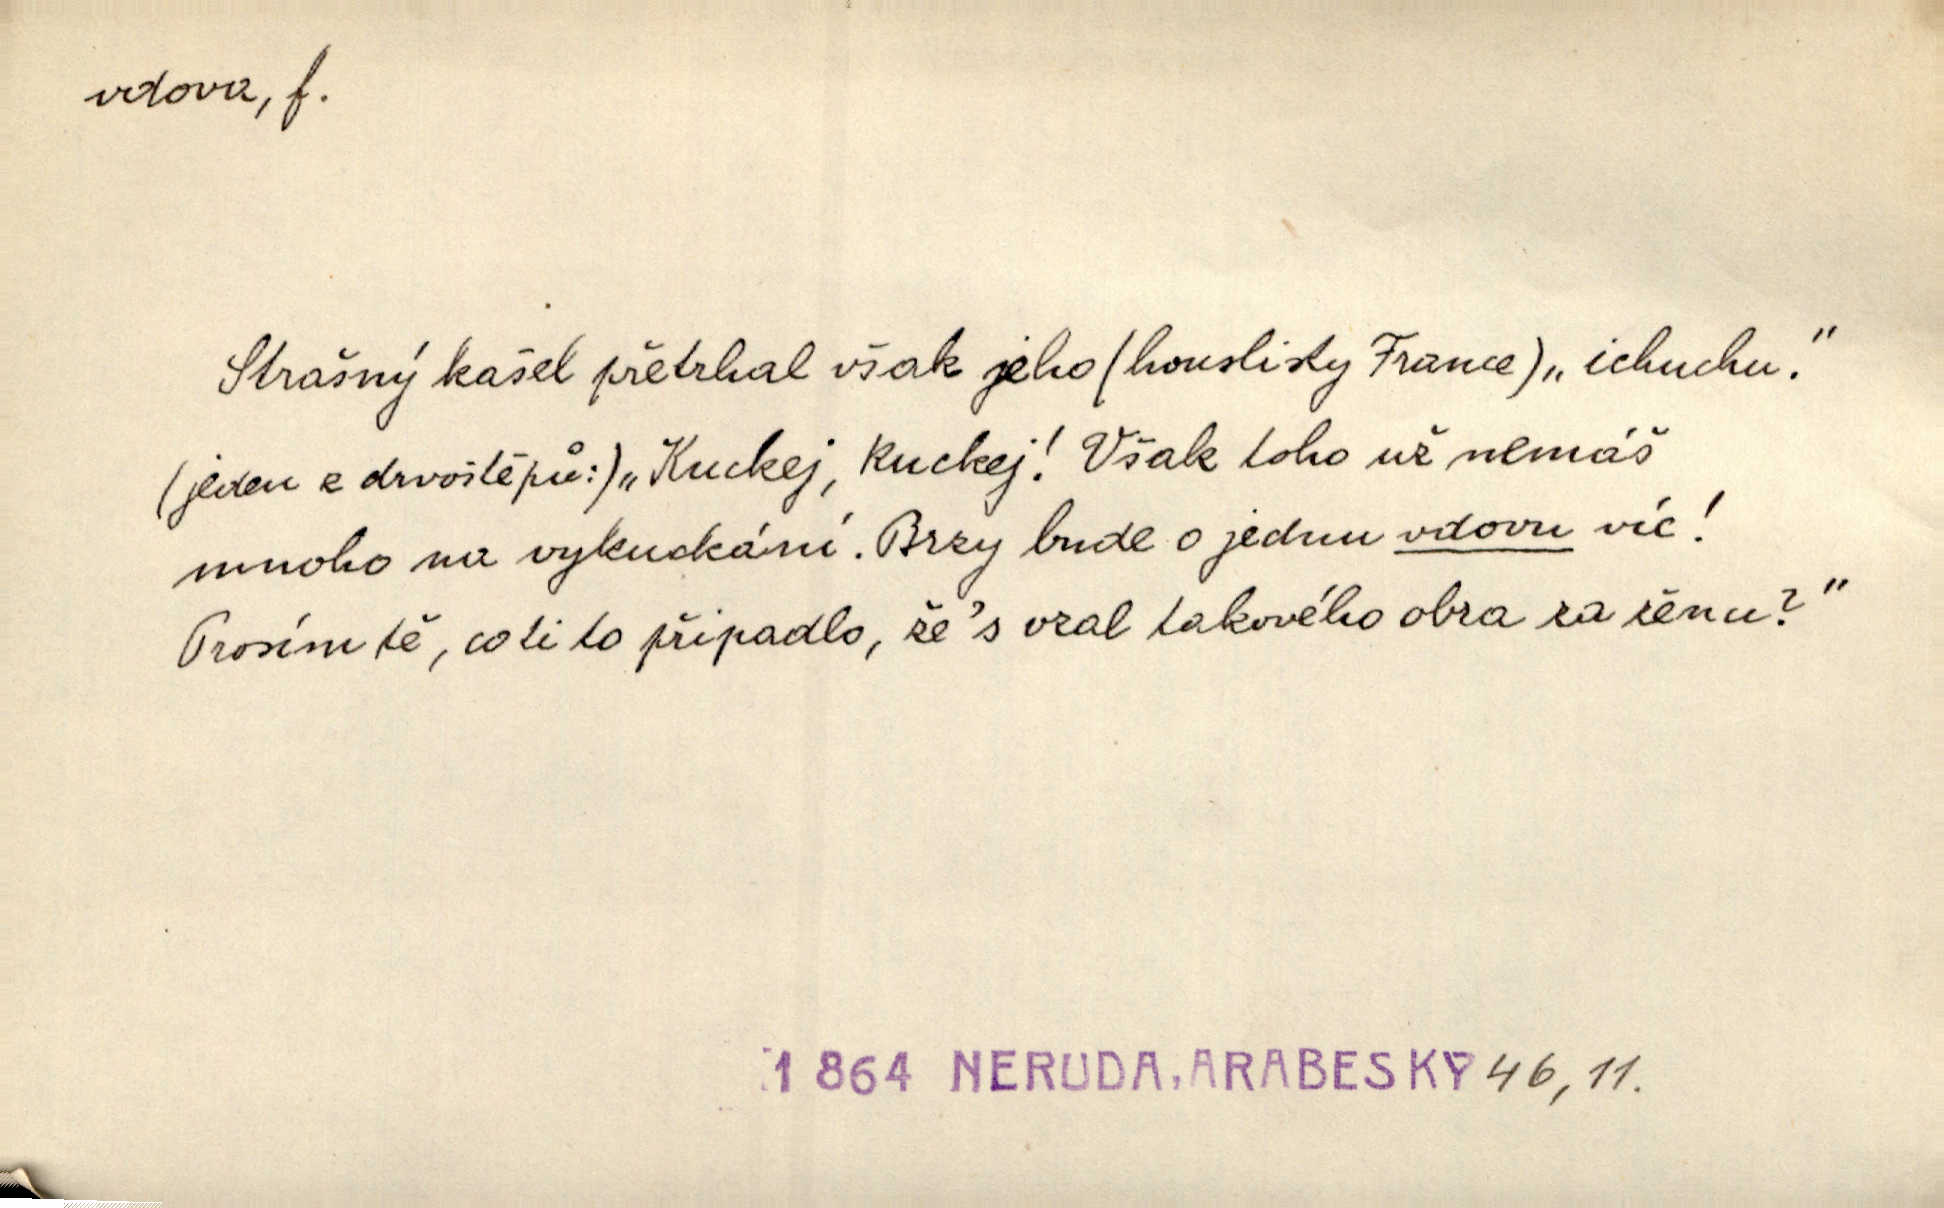 vdova, f.
Strašný kašel přetrhal však jeho (houslisty France) „ichuchu.“
(jeden z drvoštěpů:) „Kuckej, kuckej! Však toho už nemáš
mnoho na vykuckání. Brzy bude o jednu vdovu víc!
Prosím tě, co ti to připadlo, že's vzal takového obra za ženu?“
1864 NERUDA, ARABESKY 46, 11.